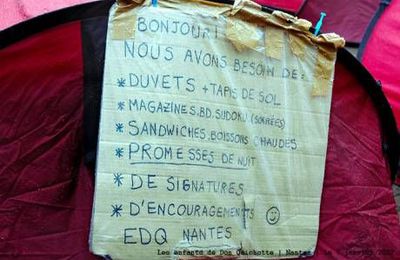 BONJOUR!
NOUS AVONS BESOIN DE:
* DUVETS + TAPIS DE SOL
* MAGAZINES.BD.SUDOKU (SOIRÉES)
* SANDWICHES.BOISSONS CHAUDES
* PROMESSES DE NUIT
* DE SIGNATURES
* D'ENCOURAGEMENTS ☺
EDQ NANTES
Les enfants de Don Quichotte | Nantes